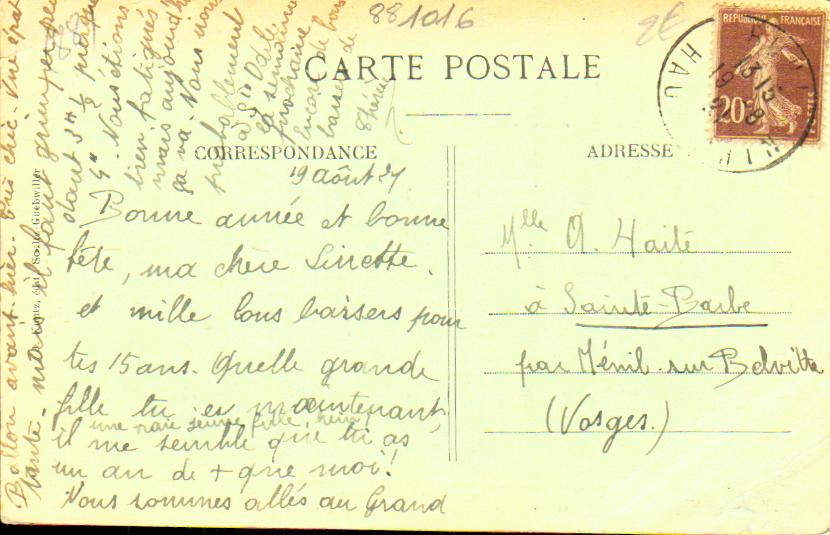 881016
CARTE POSTALE
RÉPUBLIQUE FRANÇAISE
20
POSTES
CORRESPONDANCE
ADRESSE
19 août 27
Bonne année et bonne
fête, ma chère Linette.
et mille bons baisers pour
tes 15 ans. Quelle grande
fille tu es maintenant,
une vraie jeune fille, hein!
il me semble que tu as
un an de + que moi!
Nous sommes allés au Grand
Ballon avant-hier. Très chic. Vue épa
tante. mais il faut grimper pen
dant 3h ½ presque
4h. Nous étions
bien fatigués
mais aujourd'hui
ça va. Nous irons
probablement
à Ste Odile
la semaine
prochaine
Encore de bons
baisers de
Mlle A. Haité
à Sainte-Barbe
par Ménil-sur-Belvitte
(Vosges.)
Guebwiller